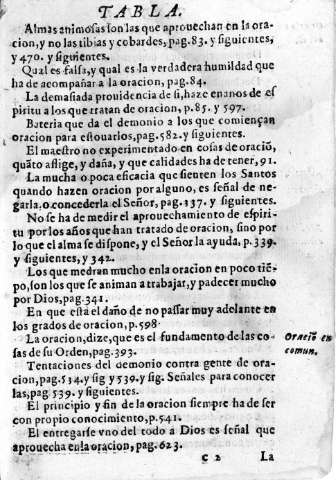 TABLA.
Almas animosas son las que aprouechan en la ora-
cion, y no las tibias y cobardes, pag. 83. y siguientes,
y 470. y siguientes.
Qual es falsa, y qual es la verdadera humildad que
ha de acompañar a la oracion, pag. 84.
La demasiada prouidencia de si, haze enanos de es
piritu a los que tratan de oracion, p. 85. y 597.
Bateria que da el demonio a los que comiençan
oracion para estouarlos, pag. 582. y siguientes.
El maestro no experimentado en cosas de oraciõ,
quãto aflige, y daña, y que calidades ha de tener, 91.
La mucha o poca eficacia que sienten los Santos
quando hazen oracion por alguno, es señal de ne-
garla, o concederla el Señor, pag. 137. y siguientes.
No se ha de medir el aprouechamiento de espiri-
tu por los años que han tratado de oracion, sino por
lo que el alma se dispone, y el Señor la ayuda, p. 339.
y siguientes, y 342.
Los que medran mucho en la oracion en poco tiẽ-
po, son los que se animan a trabajar, y padecer mucho
por Dios, pag. 341.
En que està el daño de no passar muy adelante en
los grados de oracion, p. 598.
La oracion, dize, que es el fundamento de las co-
sas de su Orden, pag. 393.
Oraciõ en
comun.
Tentaciones del demonio contra gente de ora-
cion, pag. 534. y sig y 539. y sig. Señales para conocer
las, pag. 539. y siguientes.
El principio y fin de la oracion siempre ha de ser
con propio conocimiento, p. 541.
El entregarse vno del todo a Dios es señal que
aprouecha en la oracion, pag. 623.
C 2 La